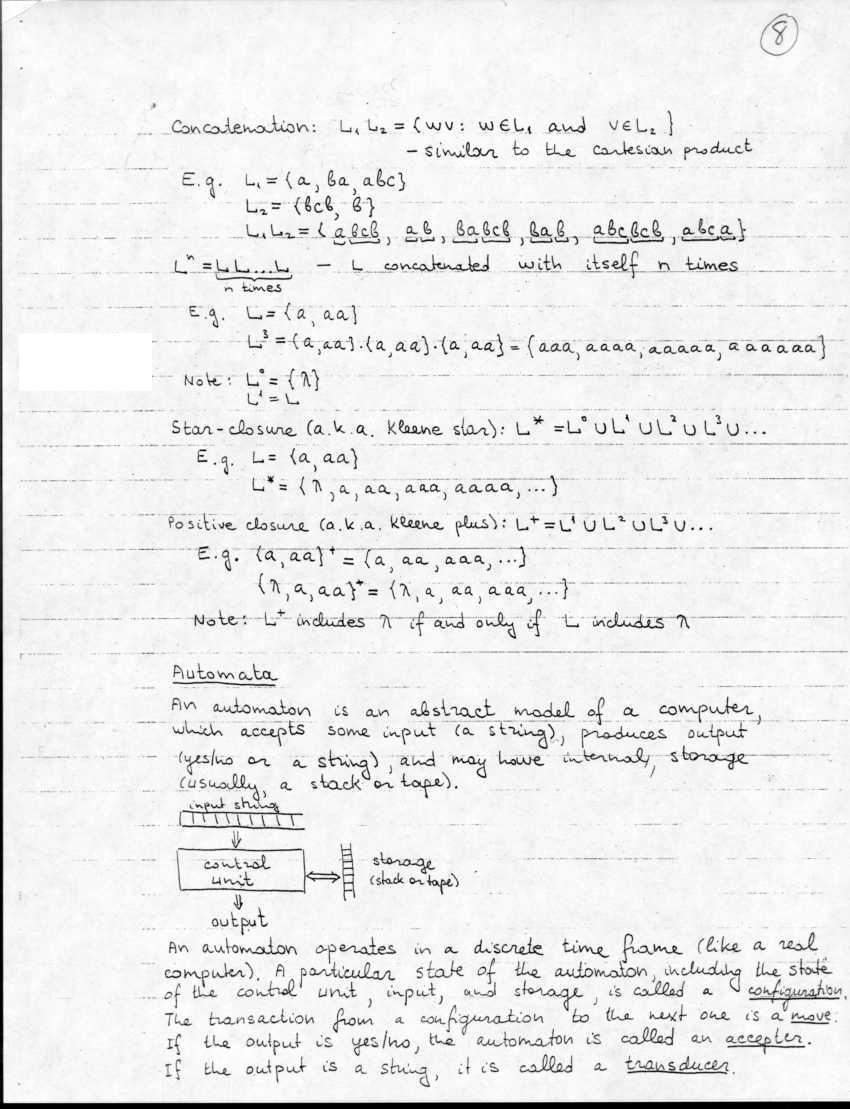 8
Concatenation: L₁L₂ = {wv: w∈L₁ and v∈L₂}
- similar to the cartesian product
E.g. L₁ = {a, ba, abc}
L₂ = {bcb, b}
L₁L₂ = {abcb, ab, babcb, bab, abcbcb, abca}
Lⁿ = LL...L - L concatenated with itself n times
n times
E.g. L = {a, aa}
L³ = {a,aa}·{a,aa}·{a,aa} = {aaa, aaaa, aaaaa, aaaaaa}
Note: L⁰ = {λ}
L¹ = L
Star-closure (a.k.a. Kleene star): L* = L⁰ ∪ L¹ ∪ L² ∪ L³ ∪ ...
E.g. L = {a, aa}
L* = {λ, a, aa, aaa, aaaa, ...}
Positive closure (a.k.a. Kleene plus): L⁺ = L¹ ∪ L² ∪ L³ ∪ ...
E.g. {a, aa}⁺ = {a, aa, aaa, ...}
{λ, a, aa}⁺ = {λ, a, aa, aaa, ...}
Note: L⁺ includes λ if and only if L includes λ
Automata
An automaton is an abstract model of a computer,
which accepts some input (a string), produces output
(yes/no or a string), and may have internal, storage
(usually, a stack or tape).
input string
control
unit
storage
(stack or tape)
output
An automaton operates in a discrete time frame (like a real
computer). A particular state of the automaton, including the state
of the control unit, input, and storage, is called a configuration.
The transaction from a configuration to the next one is a move.
If the output is yes/no, the automaton is called an accepter.
If the output is a string, it is called a transducer.